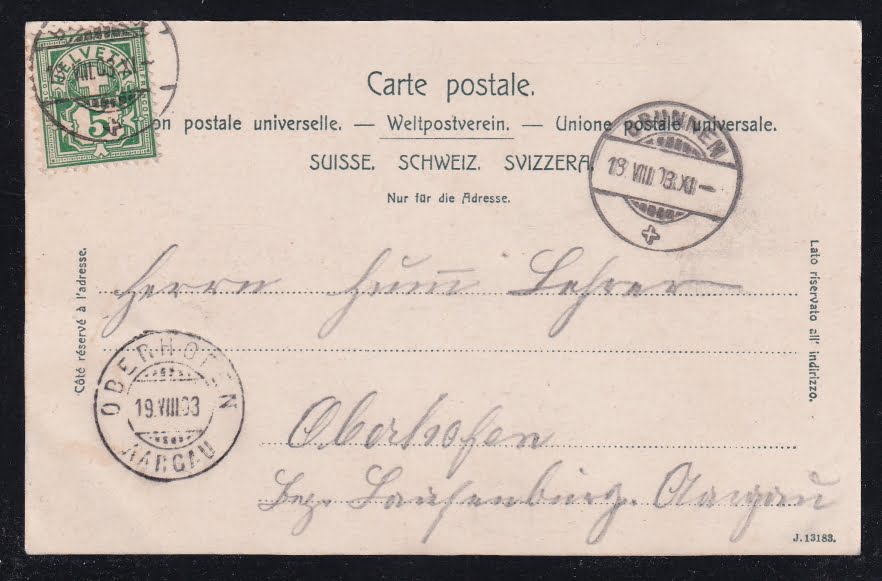 HELVETIA
VIII.03
5
Carte postale.
on postale universelle. — Weltpostverein. — Unione postale universale.
SUISSE. SCHWEIZ. SVIZZERA.
Nur für die Adresse.
BRUNNEN
18.VIII.03.XII—
Côté réservé à l'adresse.
Lato riservato all' indirizzo.
Herrn Hum̅ Lehrer
OBERHOFEN
19.VIII.03
AARGAU
Oberhofen
Bez. Laufenburg. Aargau
J. 13183.